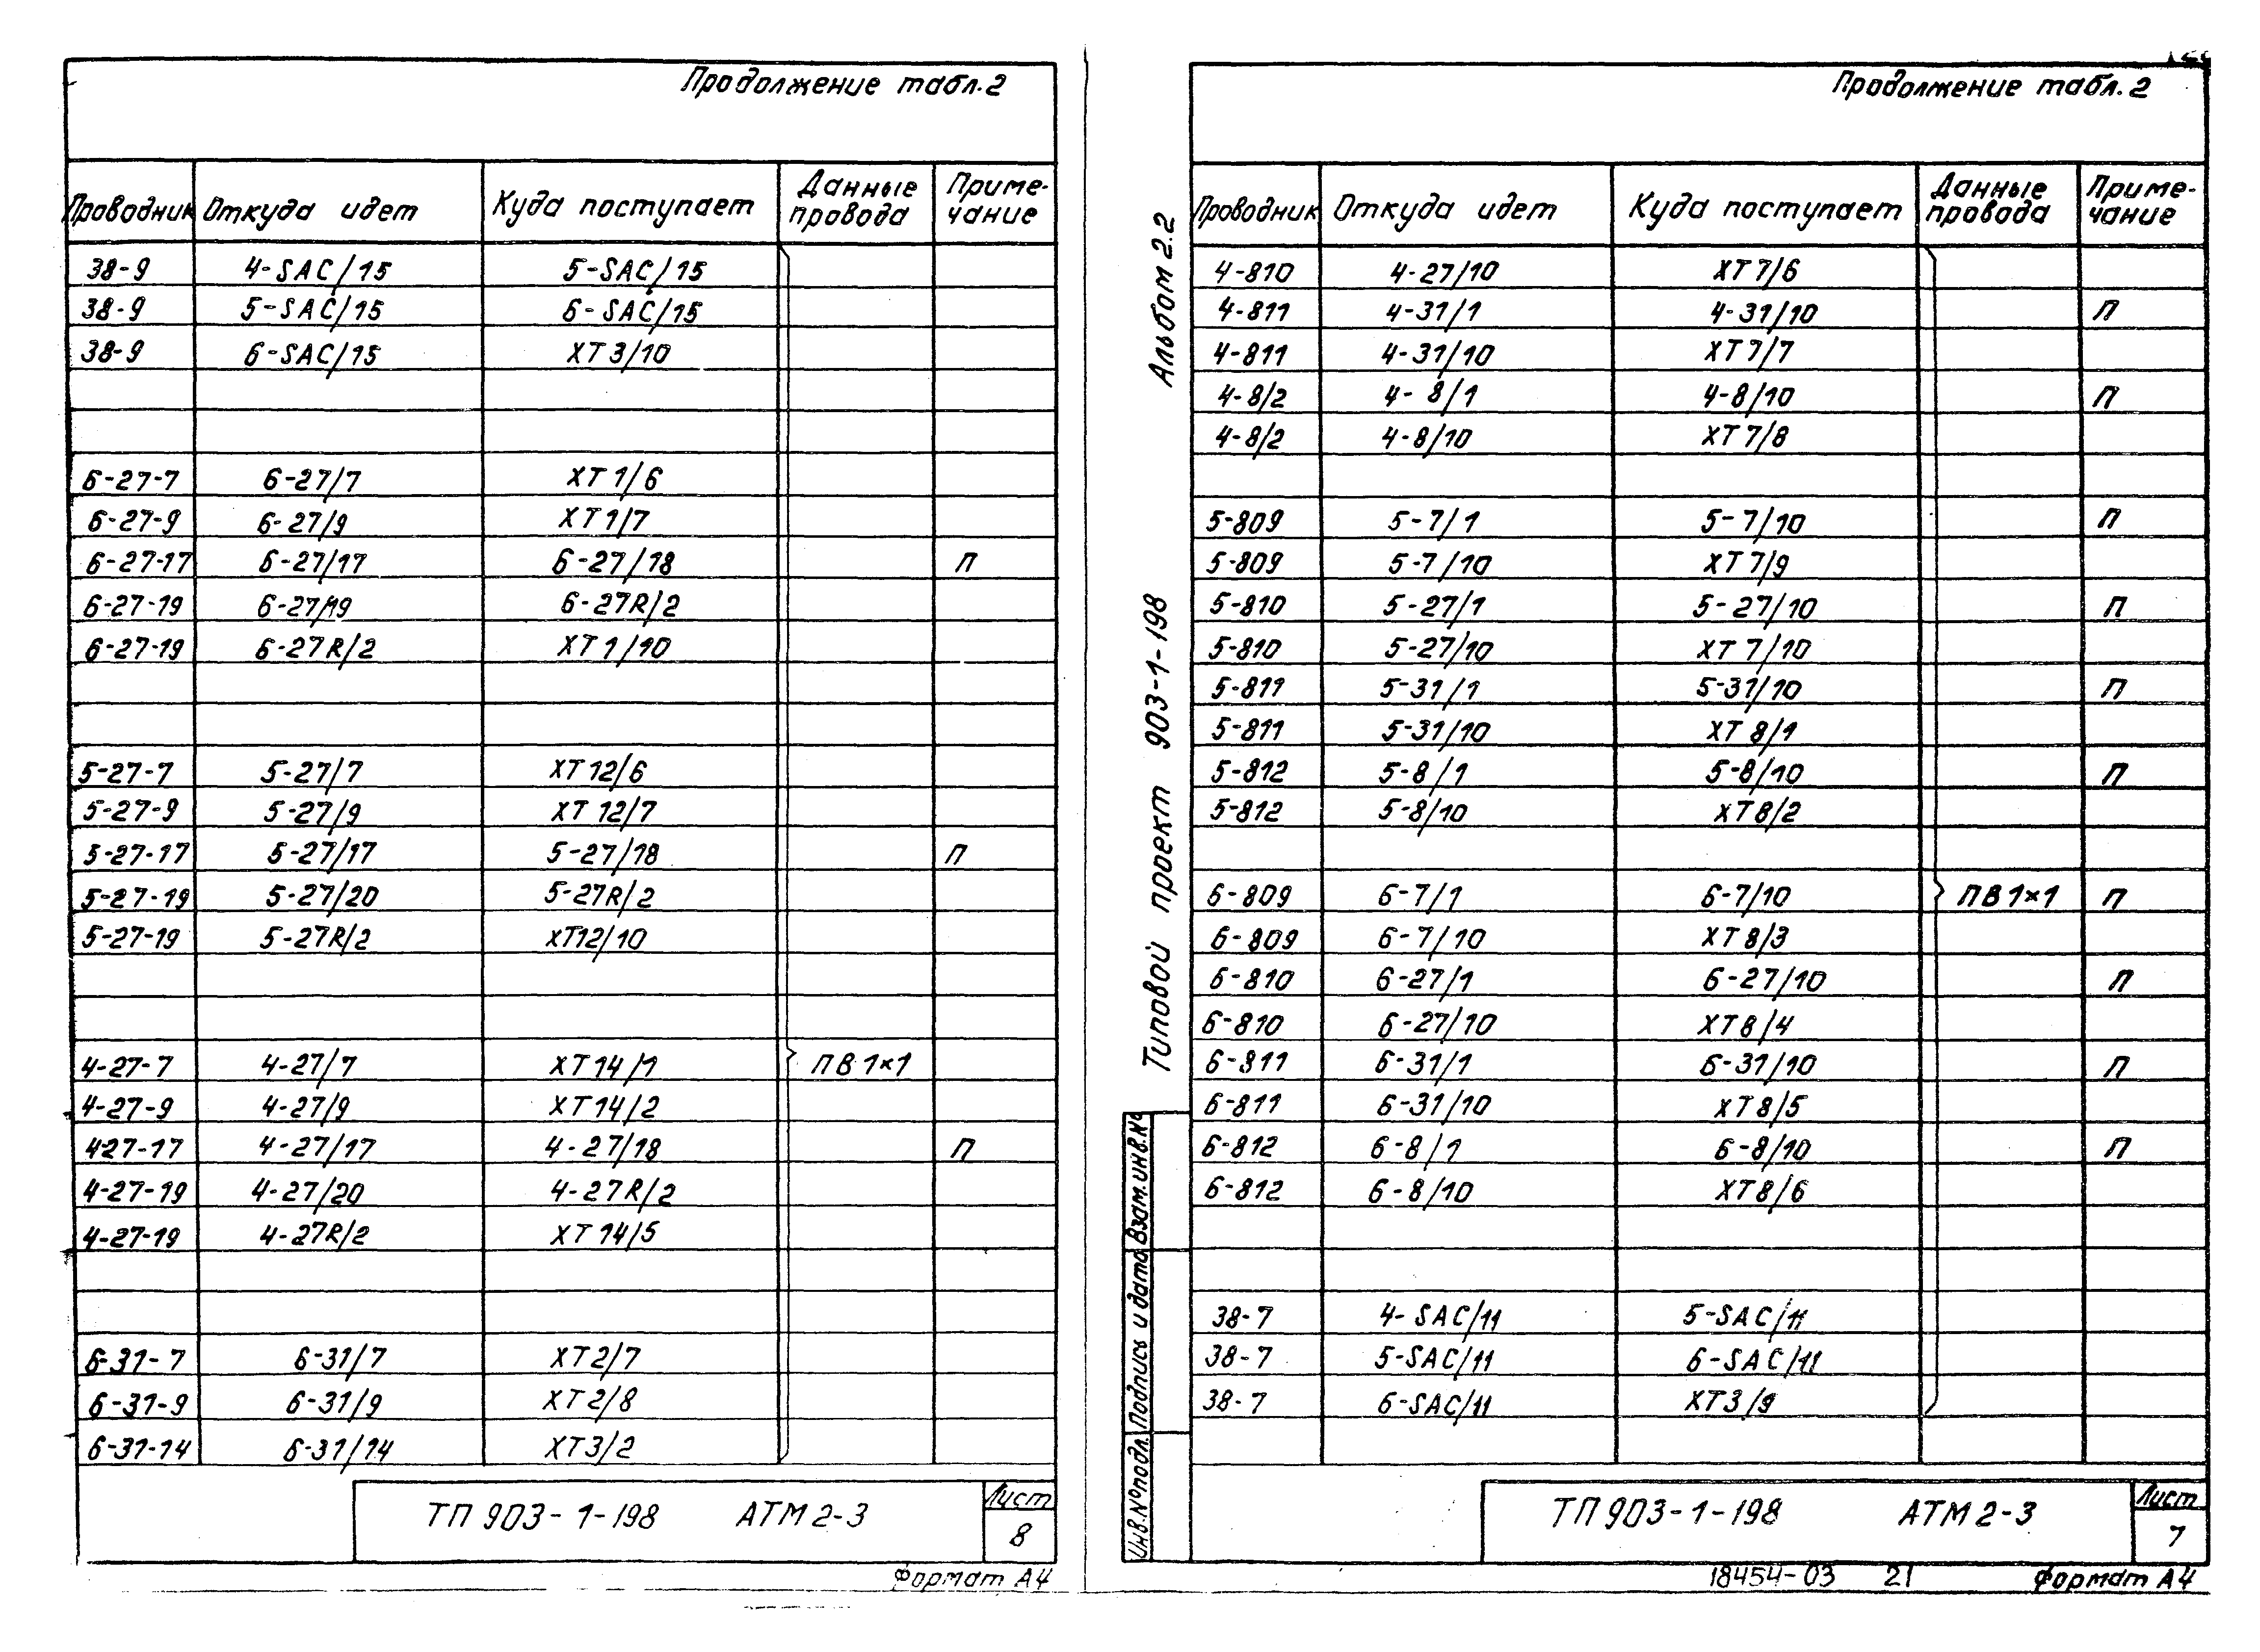 Продолжение табл.2
Проводник Откуда идет Куда поступает Данные провода Приме-чание
38-9 4-SAC/15 5-SAC/15
38-9 5-SAC/15 6-SAC/15
38-9 6-SAC/15 XT3/10
6-27-7 6-27/7 XT1/6
6-27-9 6-27/9 XT1/7
6-27-17 6-27/17 6-27/18 П
6-27-19 6-27/19 6-27R/2
6-27-19 6-27R/2 XT1/10
5-27-7 5-27/7 XT12/6
5-27-9 5-27/9 XT12/7
5-27-17 5-27/17 5-27/18 П
5-27-19 5-27/20 5-27R/2
5-27-19 5-27R/2 XT12/10
4-27-7 4-27/7 XT14/1 ПВ1×1
4-27-9 4-27/9 XT14/2
427-17 4-27/17 4-27/18 П
4-27-19 4-27/20 4-27R/2
4-27-19 4-27R/2 XT14/5
6-31-7 6-31/7 XT2/7
6-31-9 6-31/9 XT2/8
6-31-14 6-31/14 XT3/2
ТП 903-1-198 АТМ2-3 Лист 8
Формат А4
Продолжение табл.2
Проводник Откуда идет Куда поступает Данные провода Приме-чание
4-810 4-27/10 XT7/6
4-811 4-31/1 4-31/10 П
4-811 4-31/10 XT7/7
4-8/2 4-8/1 4-8/10 П
4-8/2 4-8/10 XT7/8
5-809 5-7/1 5-7/10 П
5-809 5-7/10 XT7/9
5-810 5-27/1 5-27/10 П
5-810 5-27/10 XT7/10
5-811 5-31/1 5-31/10 П
5-811 5-31/10 XT8/1
5-812 5-8/1 5-8/10 П
5-812 5-8/10 XT8/2
6-809 6-7/1 6-7/10 ПВ1×1 П
6-809 6-7/10 XT8/3
6-810 6-27/1 6-27/10 П
6-810 6-27/10 XT8/4
6-811 6-31/1 6-31/10 П
6-811 6-31/10 XT8/5
6-812 6-8/1 6-8/10 П
6-812 6-8/10 XT8/6
38-7 4-SAC/11 5-SAC/11
38-7 5-SAC/11 6-SAC/11
38-7 6-SAC/11 XT3/9
ТП 903-1-198 АТМ2-3 Лист 7
18454-03 21 Формат А4
Типовой проект 903-1-198 Альбом 2.2
Инв.№подл. Подпись и дата Взам.инв.№